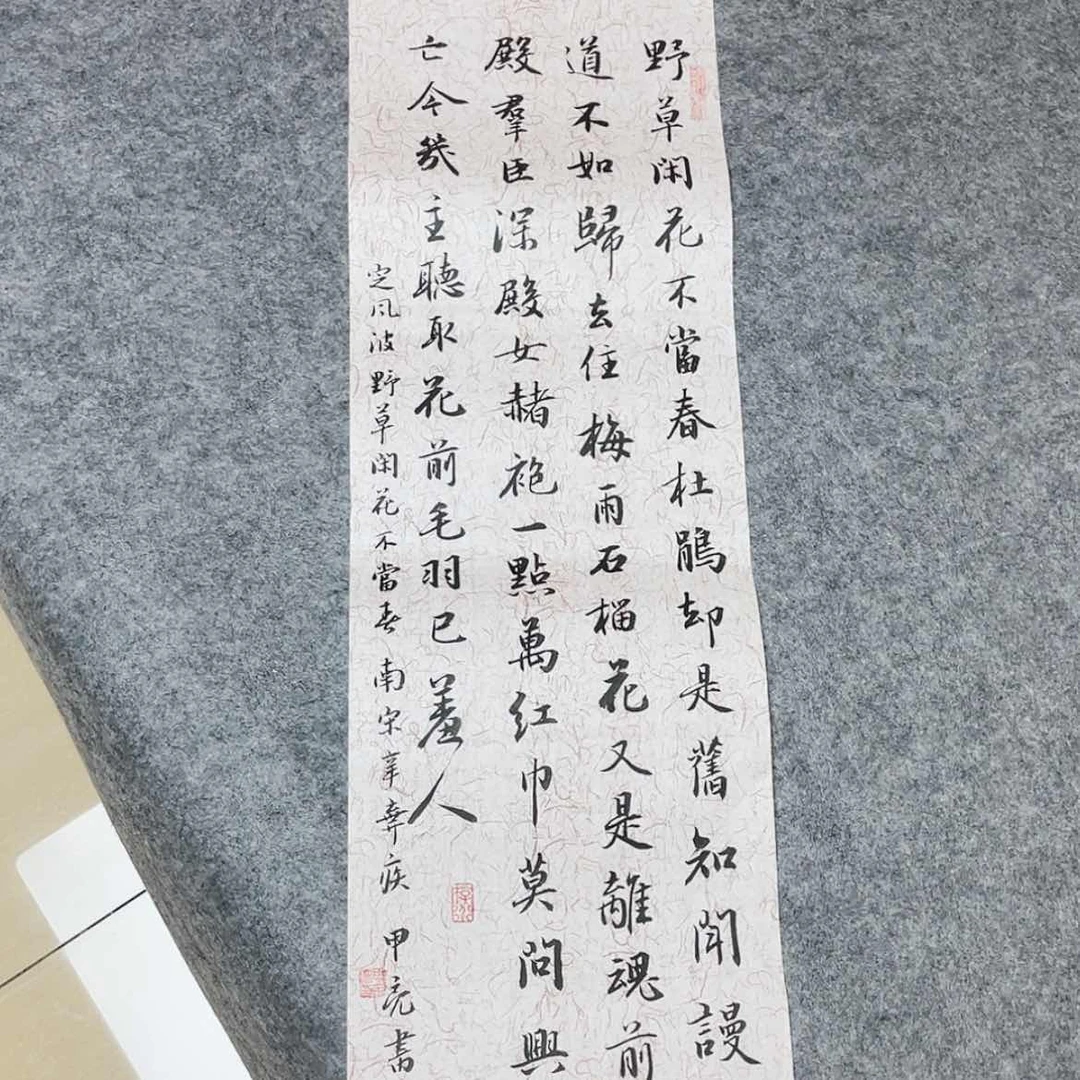 野草閑花不當春杜鵑却是舊知聞謾
道不如歸去住梅雨石榴花又是離魂前
殿羣臣深殿女赭袍一點萬紅巾莫問興
亡今幾主聽取花前毛羽已羞人
定風波野草閑花不當春 南宋辛弃疾 甲亮書